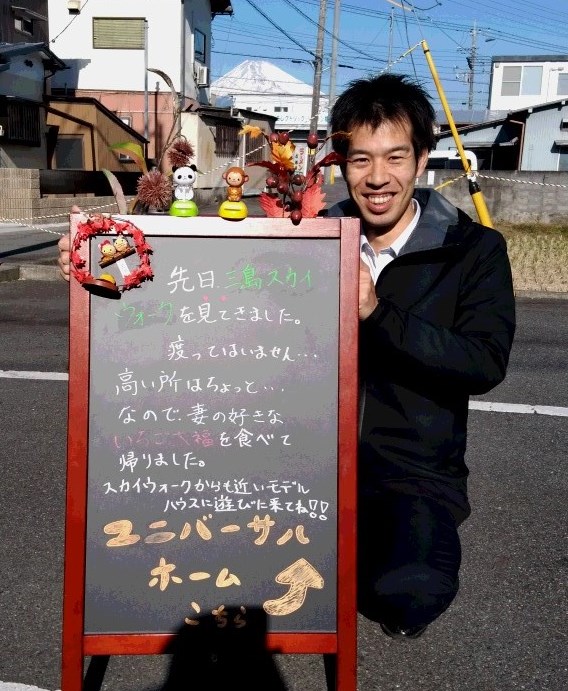 先日、三島スカイ
ウォークを見てきました。
渡ってはいません…
高い所はちょっと…
なので、妻の好きな
いちご大福を食べて
帰りました。
スカイウォークからも近いモデル
ハウスに遊びに来てね!!
ユニバーサル
ホーム
こちら